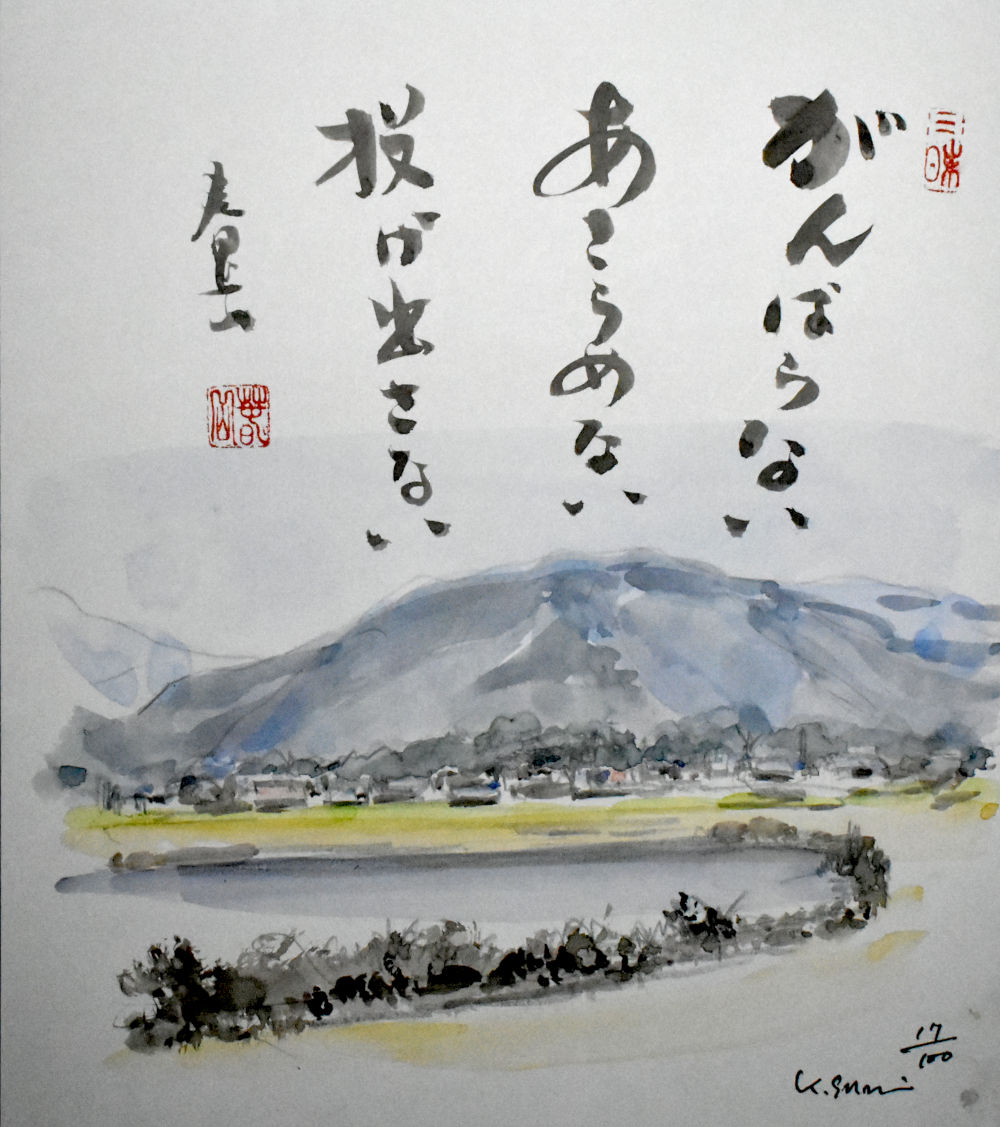 三昧
がんばらない
あきらめない
投げ出さない
17/100
K. Sumi